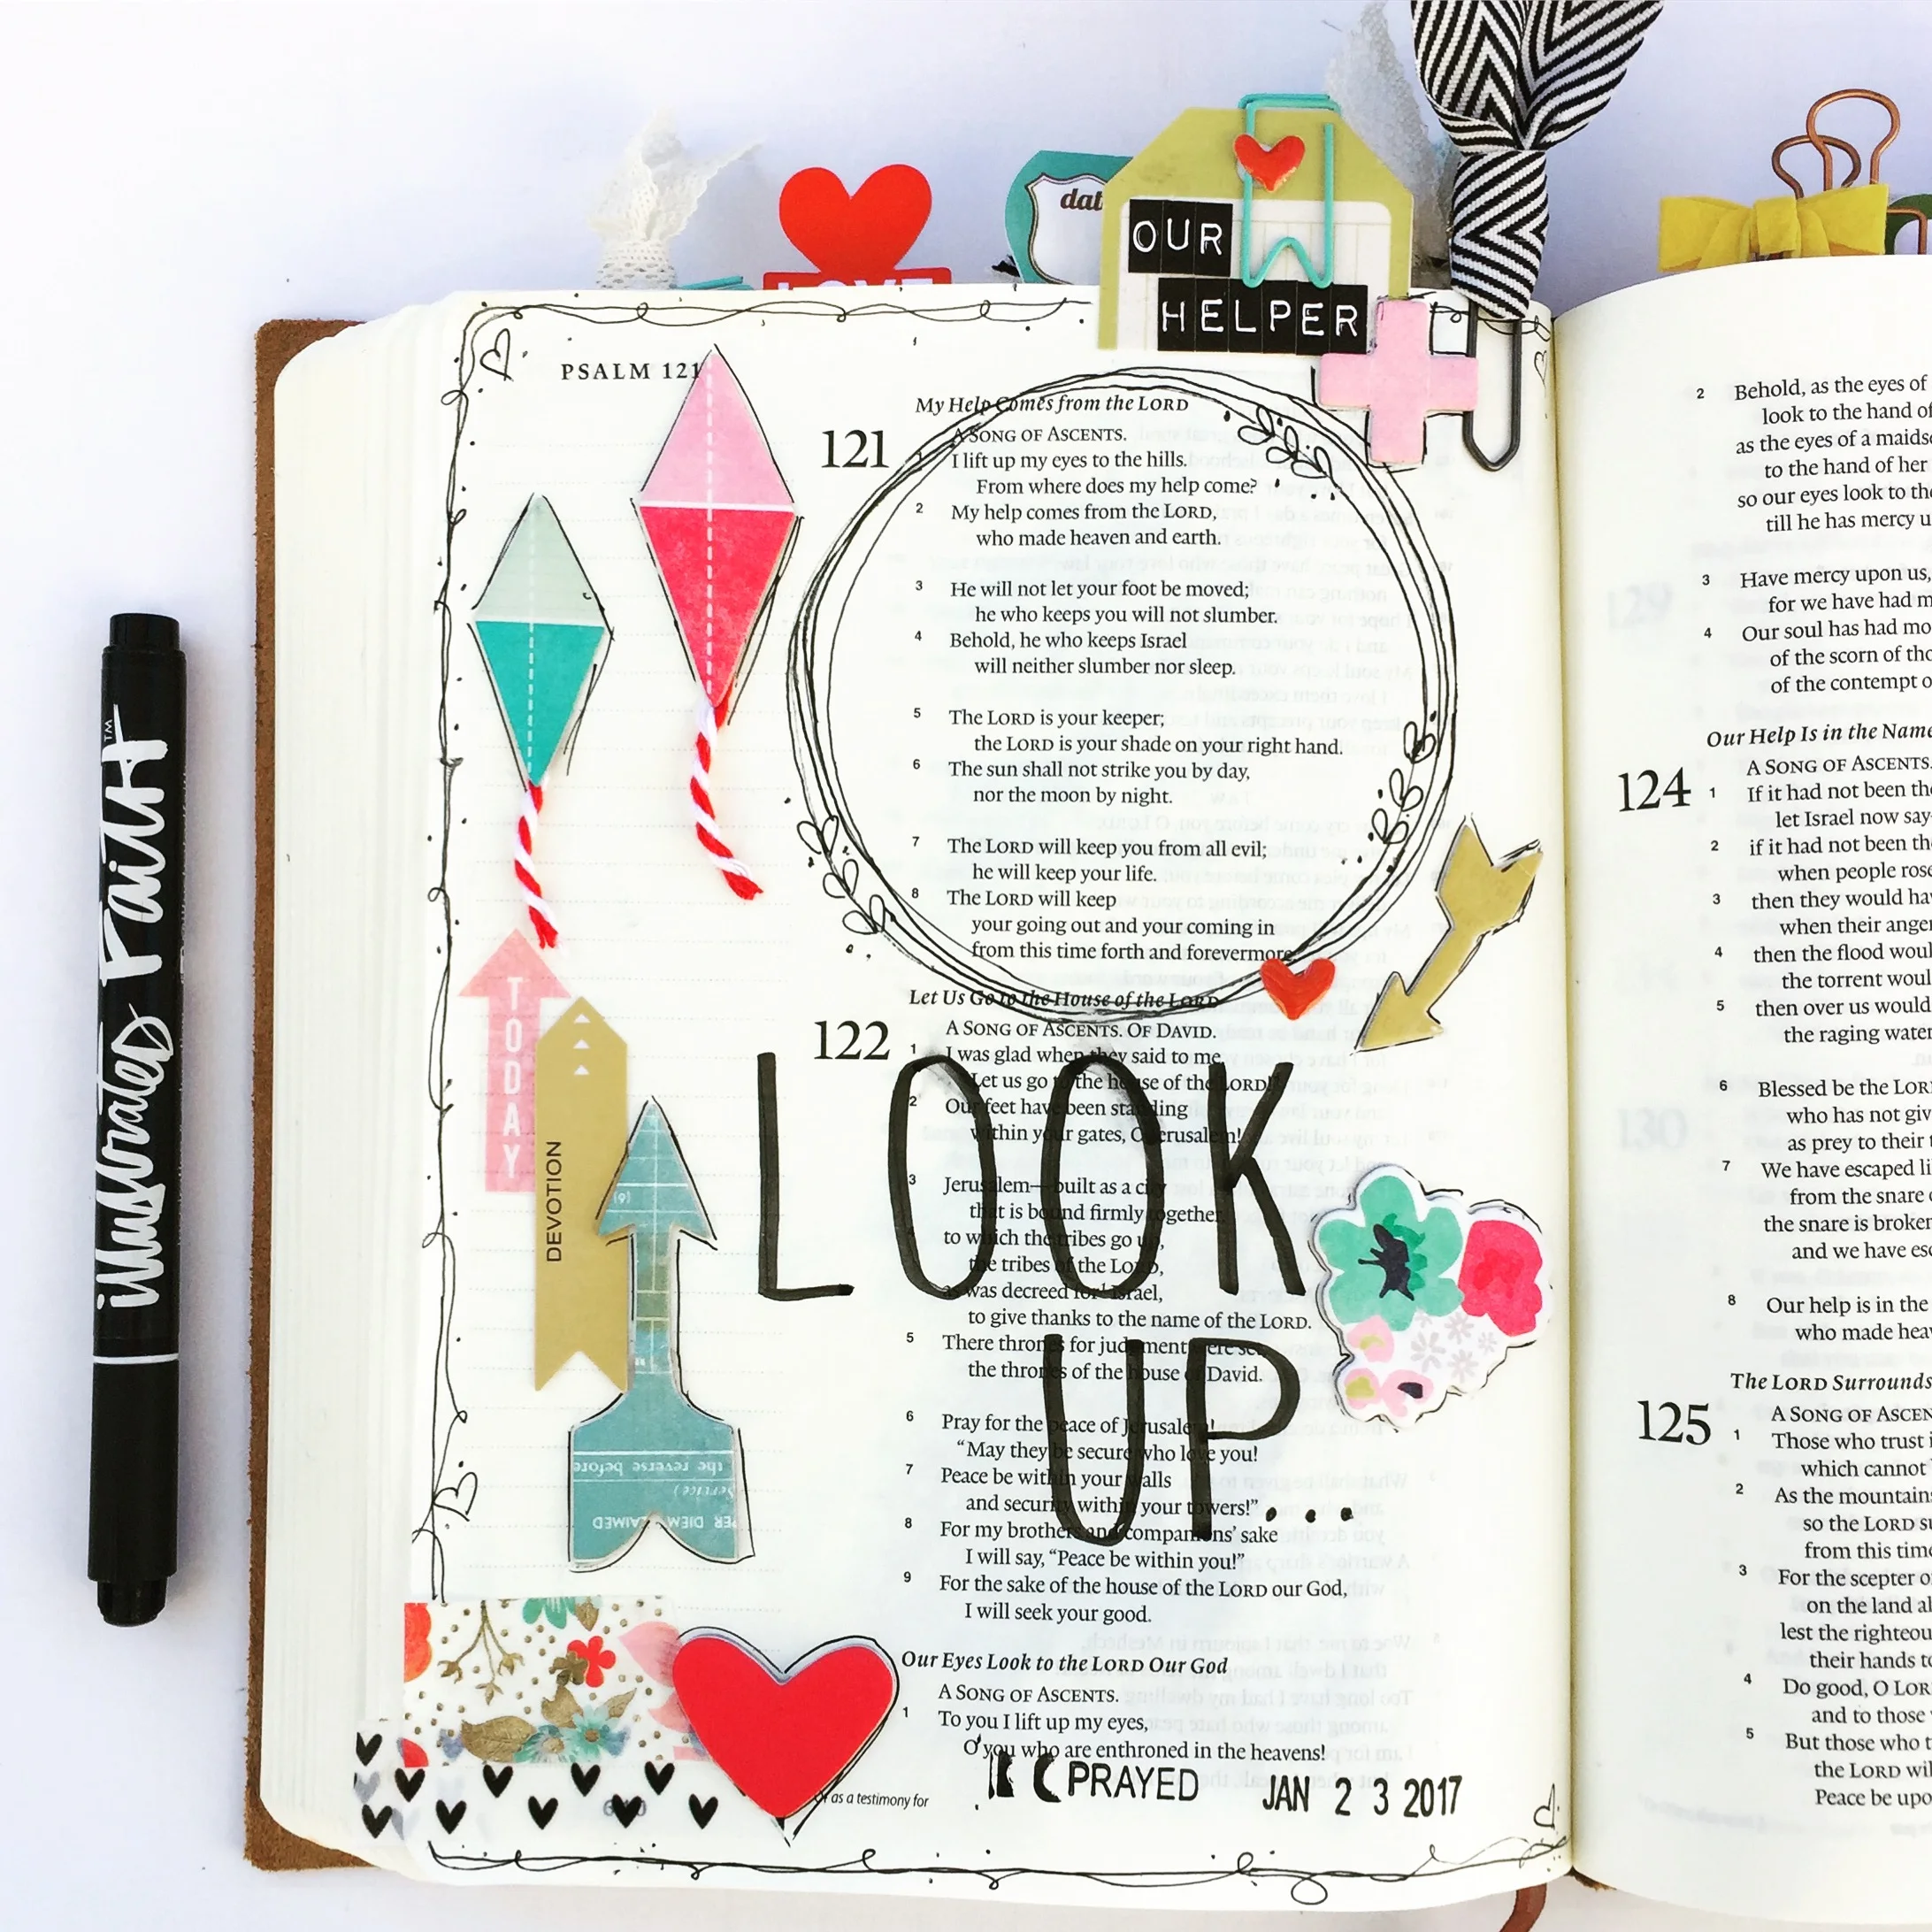 dat
LOVE
OUR
HELPER
PSALM 121
My Help Comes from the LORD
121
A SONG OF ASCENTS.
I lift up my eyes to the hills.
From where does my help come?
2 My help comes from the LORD,
who made heaven and earth.
3 He will not let your foot be moved;
he who keeps you will not slumber.
4 Behold, he who keeps Israel
will neither slumber nor sleep.
5 The LORD is your keeper;
the LORD is your shade on your right hand.
6 The sun shall not strike you by day,
nor the moon by night.
7 The LORD will keep you from all evil;
he will keep your life.
8 The LORD will keep
your going out and your coming in
from this time forth and forevermore
Let Us Go to the House of the LORD
122
A SONG OF ASCENTS. OF DAVID.
1 I was glad when they said to me,
Let us go to the house of the LORD!
2 Our feet have been standing
within your gates, O Jerusalem!
3 Jerusalem—built as a city
that is bound firmly together,
to which the tribes go up,
the tribes of the LORD,
as was decreed for Israel,
to give thanks to the name of the LORD.
5 There thrones for judgment were set,
the thrones of the house of David.
6 Pray for the peace of Jerusalem!
“May they be secure who love you!
7 Peace be within your walls
and security within your towers!”
8 For my brothers and companions’ sake
I will say, “Peace be within you!”
9 For the sake of the house of the LORD our God,
I will seek your good.
Our Eyes Look to the LORD Our God
A SONG OF ASCENTS.
1 To you I lift up my eyes,
O you who are enthroned in the heavens!
Or as a testimony for
PRAYED JAN 23 2017
LOOK
UP...
TODAY
DEVOTION
(9)
the reverse before
Service)
PER DIEM CLAIMED
illustrated Faith™
2 Behold, as the eyes of
look to the hand of
as the eyes of a maidse
to the hand of her
so our eyes look to the
till he has mercy u
3 Have mercy upon us,
for we have had m
4 Our soul has had mo
of the scorn of tho
of the contempt o
Our Help Is in the Name
A SONG OF ASCENTS.
124
1 If it had not been the
let Israel now say
2 if it had not been the
when people rose
3 then they would hav
when their anger
4 then the flood woul
the torrent woul
5 then over us would
the raging water
6 Blessed be the LOR
who has not giv
as prey to their t
7 We have escaped li
from the snare o
the snare is broken
and we have esc
8 Our help is in the
who made heav
The LORD Surrounds
A SONG OF ASCEN
125
1 Those who trust i
which cannot
2 As the mountains
so the LORD su
from this time
3 For the scepter o
on the land al
lest the righteou
their hands to
4 Do good, O LOR
and to those
5 But those who t
the LORD wil
Peace be upo